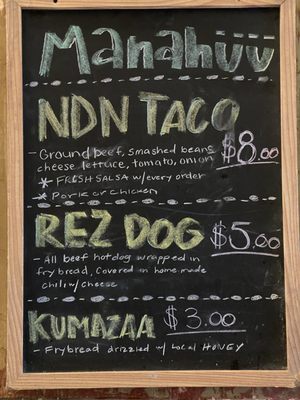 Manahüü
NDN TACO
- Ground beef, smashed beans
cheese, lettuce, tomato, onion
$8.00
* FRESH SALSA w/every order
* Pork or Chicken
REZ DOG
$5.00
- All beef hotdog wrapped in
frybread, covered in home-made
chili w/cheese
KUMAZAA
$3.00
- Frybread drizzled w/ Local HONEY